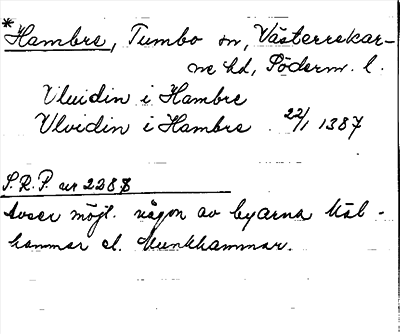 *
Hambre, Tumbo sn, Västerrekar-
ne hd, Söderm. l.
Vluidin i Hambre
Vlvidin i Hambre 22/1 1387
S.R.P. nr 2387
Avser möjl. någon av byarna Käl-
hammar el. Munkhammar.